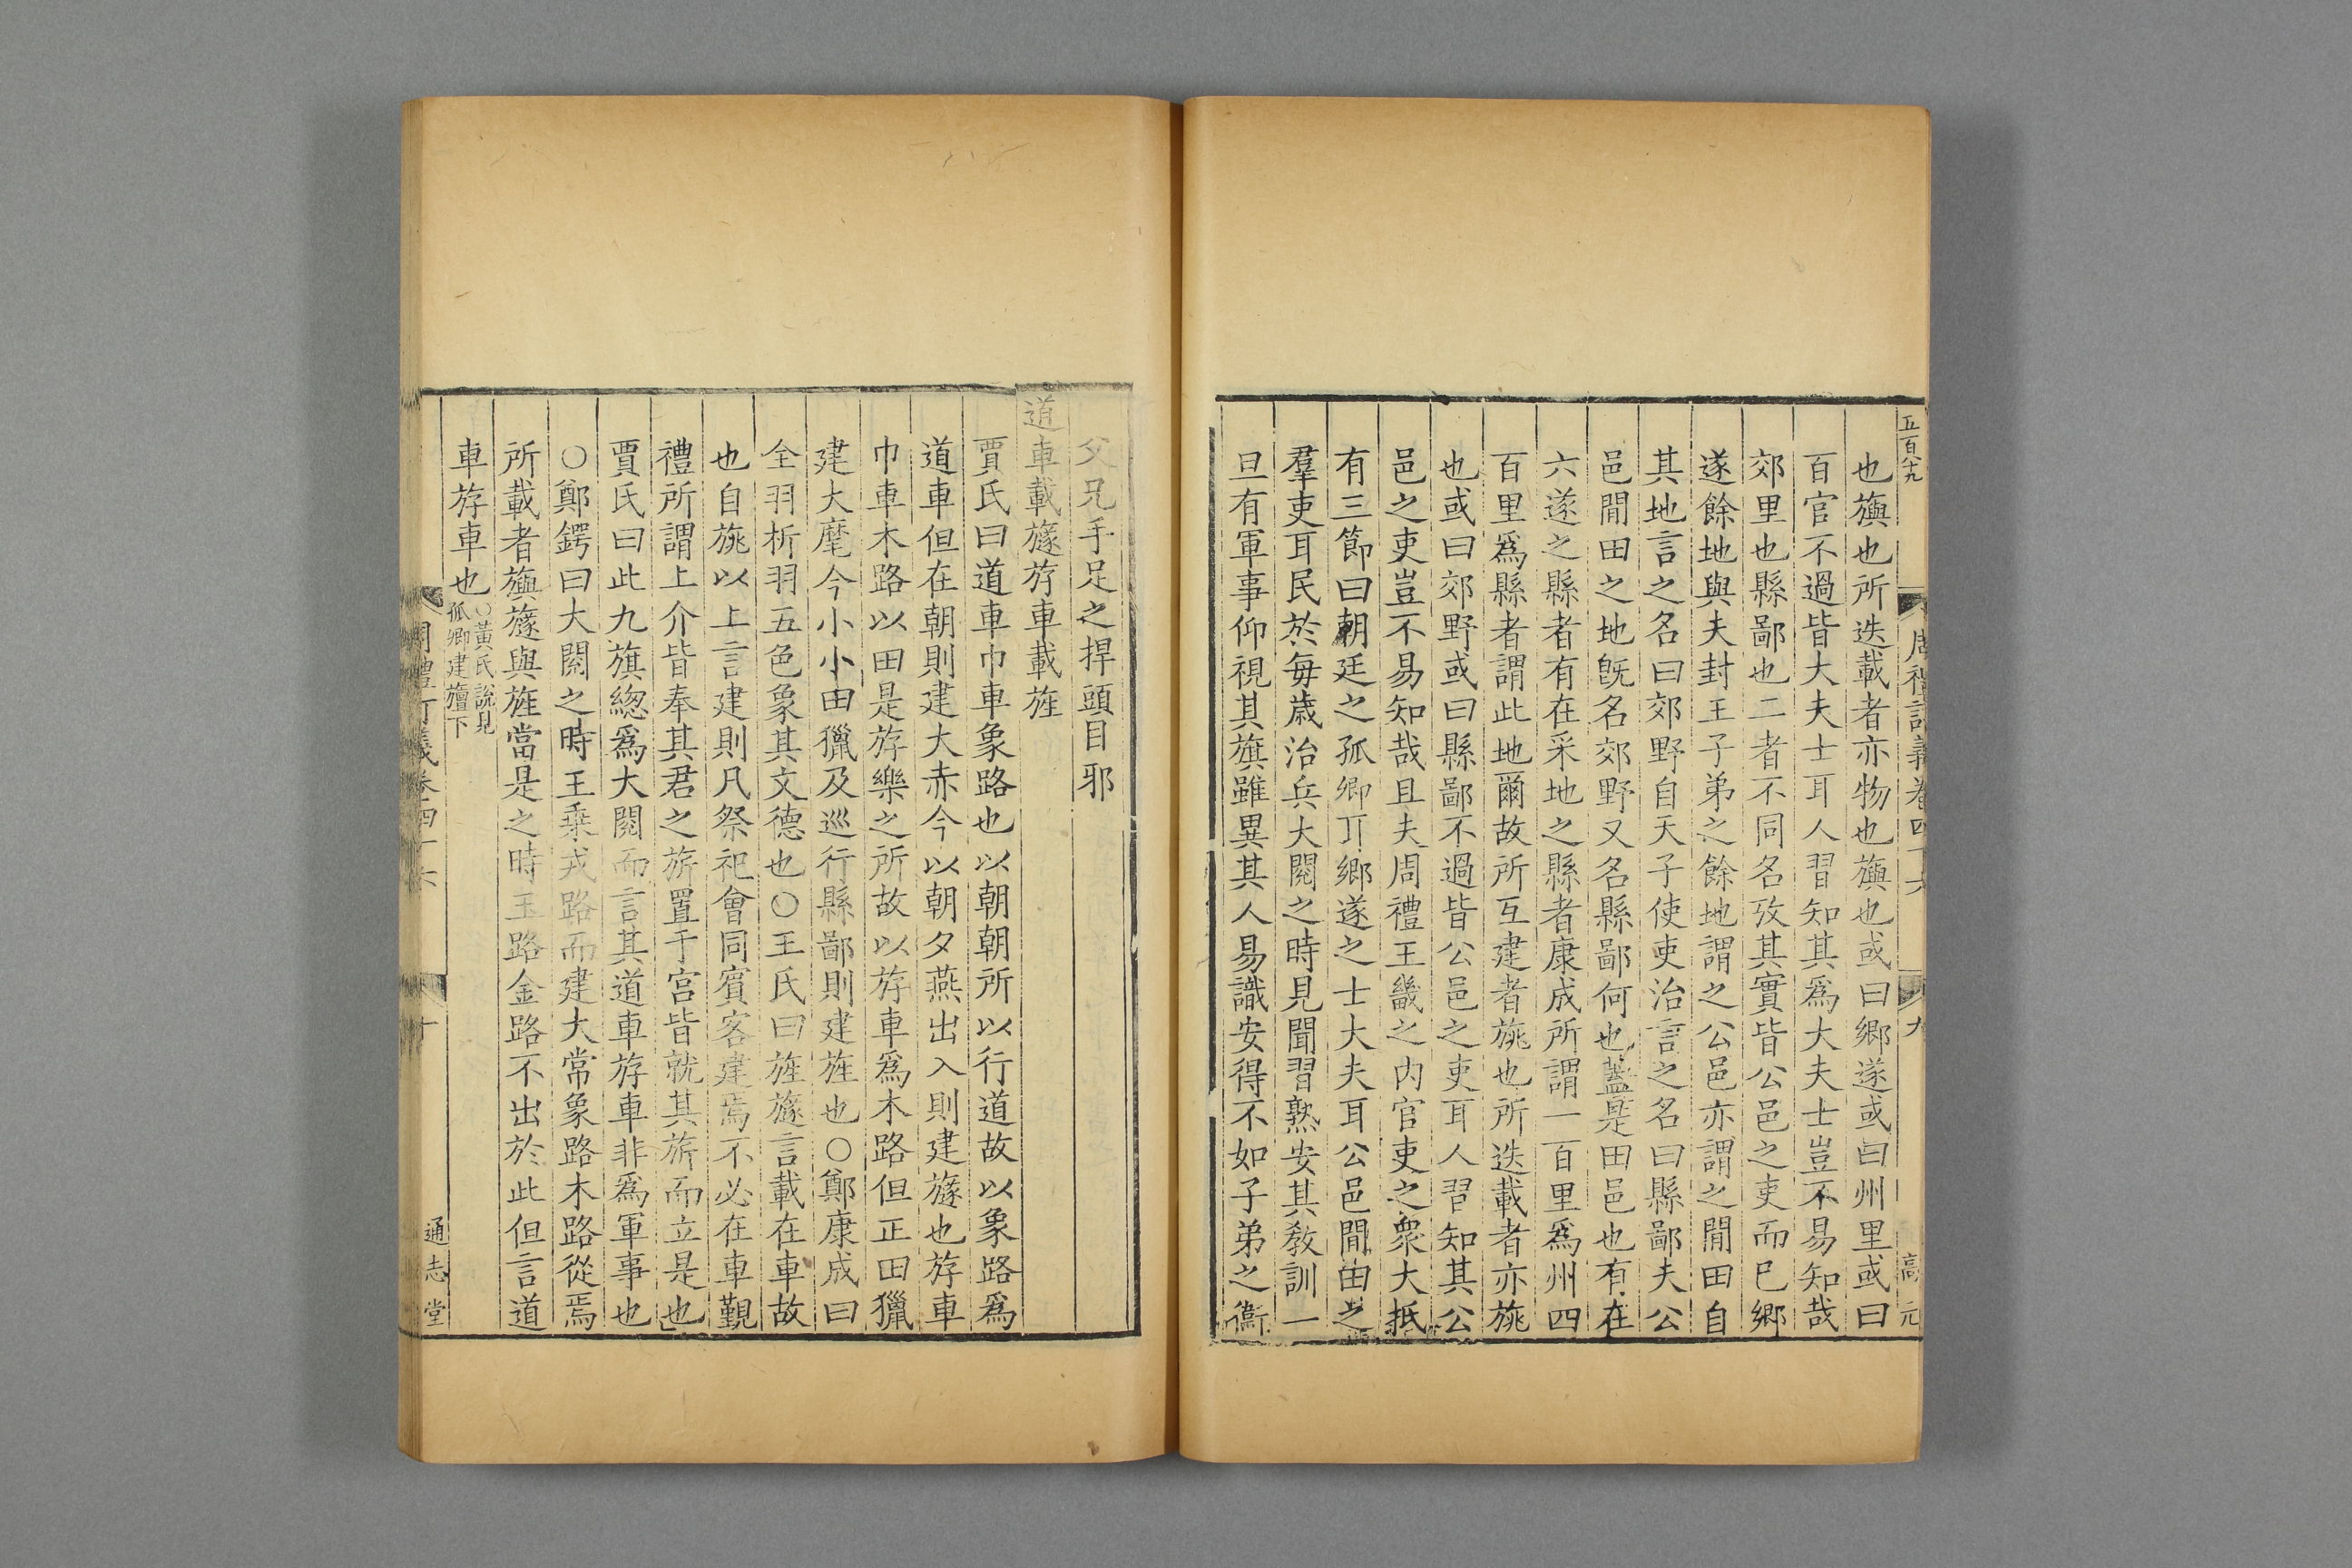 五百八十九
周禮訂義卷四十六
九
高元
也旟也所迭載者亦物也旟也或曰鄉遂或曰州里或曰
百官不過皆大夫士耳人習知其爲大夫士豈不易知哉
郊里也縣鄙也二者不同名攷其實皆公邑之吏而巳鄉
遂餘地與夫封王子弟之餘地謂之公邑亦謂之閒田自
其地言之名曰郊野自天子使吏治言之名曰縣鄙夫公
邑閒田之地旣名郊野又名縣鄙何也蓋是田邑也有在
六遂之縣者有在采地之縣者康成所謂一百里爲州四
百里爲縣者謂此地爾故所互建者旐也所迭載者亦旐
也或曰郊野或曰縣鄙不過皆公邑之吏耳人習知其公
邑之吏豈不易知哉且夫周禮王畿之內官吏之衆大抵
有三節曰朝廷之孤卿丌鄉遂之士大夫耳公邑閒田之
羣吏耳民於每歲治兵大閱之時見聞習熟安其敎訓一
旦有軍事仰視其旗雖異其人易識安得不如子弟之衞
父兄手足之捍頭目邪
道車載旞斿車載旌
賈氏曰道車巾車象路也以朝朝所以行道故以象路爲
道車但在朝則建大赤今以朝夕燕出入則建旞也斿車
巾車木路以田是斿樂之所故以斿車爲木路但正田獵
建大麾今小小田獵及巡行縣鄙則建旌也○鄭康成曰
全羽析羽五色象其文德也○王氏曰旌旞言載在車故
也自旐以上言建則凡祭祀會同賓客建焉不必在車覲
禮所謂上介皆奉其君之旂置于宮皆就其旂而立是也
賈氏曰此九旗緫爲大閱而言其道車斿車非爲軍事也
○鄭鍔曰大閱之時王乘戎路而建大常象路木路從焉
所載者旟旞與旌當是之時玉路金路不出於此但言道
車斿車也○黃氏說見孤卿建旜下
周禮訂義卷四十六
十
通志堂